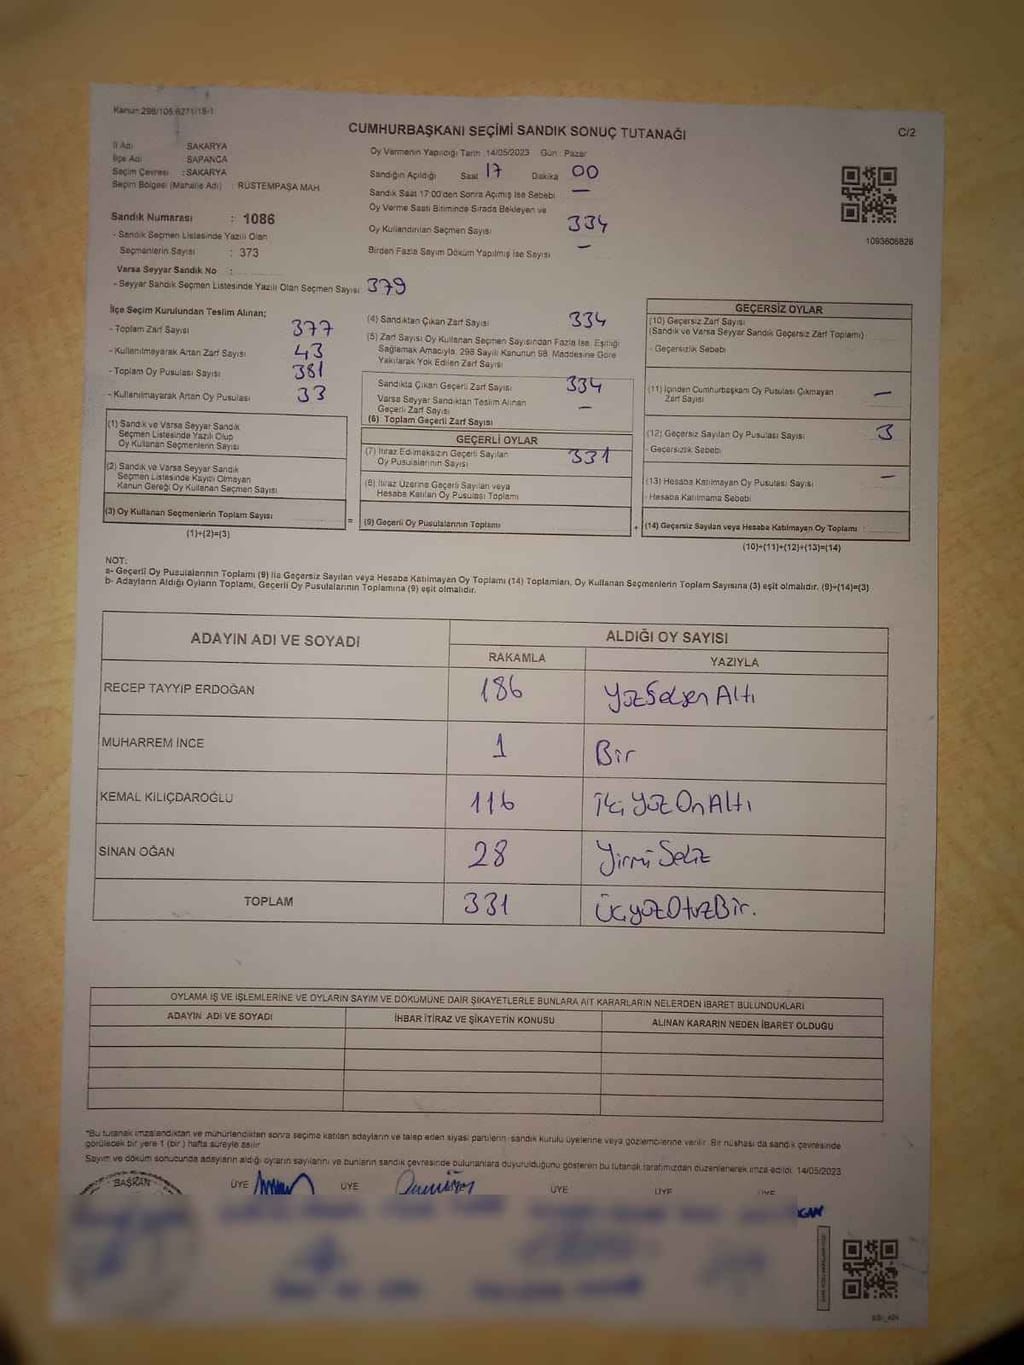 Kanun 298/105 6271/18-1
CUMHURBAŞKANI SEÇİMİ SANDIK SONUÇ TUTANAĞI
C/2
İl Adı SAKARYA
İlçe Adı SAPANCA
Seçim Çevresi : SAKARYA
Seçim Bölgesi (Mahalle Adı) : RÜSTEMPAŞA MAH.
Sandık Numarası : 1086
- Sandık Seçmen Listesinde Yazılı Olan
Seçmenlerin Sayısı : 373
Varsa Seyyar Sandık No :
- Seyyar Sandık Seçmen Listesinde Yazılı Olan Seçmen Sayısı 379
Oy Vermenin Yapıldığı Tarih :14/05/2023 Gün : Pazar
Sandığın Açıldığı Saat 17 Dakika 00
Sandık Saat 17:00'den Sonra Açımış İse Sebebi —
Oy Verme Saati Bitiminde Sırada Bekleyen ve
Oy Kullandırılan Seçmen Sayısı 334
Birden Fazla Sayım Döküm Yapılmış İse Sayısı —
1093606828
İlçe Seçim Kurulundan Teslim Alınan;
- Toplam Zarf Sayısı 377
- Kullanılmayarak Artan Zarf Sayısı 43
- Toplam Oy Pusulası Sayısı 381
- Kullanılmayarak Artan Oy Pusulası 33
(1) Sandık ve Varsa Seyyar Sandık
Seçmen Listesinde Yazılı Olup
Oy Kullanan Seçmenlerin Sayısı
(2) Sandık ve Varsa Seyyar Sandık
Seçmen Listesinde Kayıtlı Olmayan
Kanun Gereği Oy Kullanan Seçmen Sayısı
(3) Oy Kullanan Seçmenlerin Toplam Sayısı
(1)+(2)=(3)
(4) Sandıktan Çıkan Zarf Sayısı 334
(5) Zarf Sayısı Oy Kullanan Seçmen Sayısından Fazla İse, Eşitliği
Sağlamak Amacıyla, 298 Sayılı Kanunun 98. Maddesine Göre
Yakılarak Yok Edilen Zarf Sayısı
Sandıkta Çıkan Geçerli Zarf Sayısı 334
Varsa Seyyar Sandıktan Teslim Alınan
Geçerli Zarf Sayısı —
(6) Toplam Geçerli Zarf Sayısı
GEÇERLİ OYLAR
(7) İtiraz Edilmeksizin Geçerli Sayılan
Oy Pusulalarının Sayısı 331
(8) İtiraz Üzerine Geçerli Sayılan veya
Hesaba Katılan Oy Pusulası Toplamı
= (9) Geçerli Oy Pusulalarının Toplamı
GEÇERSİZ OYLAR
(10) Geçersiz Zarf Sayısı
(Sandık ve Varsa Seyyar Sandık Geçersiz Zarf Toplamı)
- Geçersizlik Sebebi
(11) İçinden Cumhurbaşkanı Oy Pusulası Çıkmayan
Zarf Sayısı —
(12) Geçersiz Sayılan Oy Pusulası Sayısı 3
- Geçersizlik Sebebi
(13) Hesaba Katılmayan Oy Pusulası Sayısı —
- Hesaba Katılmama Sebebi
+ (14) Geçersiz Sayılan veya Hesaba Katılmayan Oy Toplamı
(10)+(11)+(12)+(13)=(14)
NOT:
a- Geçerli Oy Pusulalarının Toplamı (9) ile Geçersiz Sayılan veya Hesaba Katılmayan Oy Toplamı (14) Toplamları, Oy Kullanan Seçmenlerin Toplam Sayısına (3) eşit olmalıdır. (9)+(14)=(3)
b- Adayların Aldığı Oyların Toplamı, Geçerli Oy Pusulalarının Toplamına (9) eşit olmalıdır.
ADAYIN ADI VE SOYADI ALDIĞI OY SAYISI
RAKAMLA YAZIYLA
RECEP TAYYİP ERDOĞAN 186 Yüz Seksen Altı
MUHARREM İNCE 1 Bir
KEMAL KILIÇDAROĞLU 116 İki Yüz On Altı
SİNAN OĞAN 28 Yirmi Sekiz
TOPLAM 331 Üçyüz Otuz Bir.
OYLAMA İŞ VE İŞLEMLERİNE VE OYLARIN SAYIM VE DÖKÜMÜNE DAİR ŞİKAYETLERLE BUNLARA AİT KARARLARIN NELERDEN İBARET BULUNDUKLARI
ADAYIN ADI VE SOYADI İHBAR İTİRAZ VE ŞİKAYETİN KONUSU ALINAN KARARIN NEDEN İBARET OLDUĞU
*Bu tutanak imzalandıktan ve mühürlendikten sonra seçime katılan adayların ve talep eden siyasi partilerin sandık kurulu üyelerine veya gözlemcilerine verilir. Bir nüshası da sandık çevresinde
görülecek bir yere 1 (bir) hafta süreyle asılır.
Sayım ve döküm sonucunda adayların aldığı oyların sayılarını ve bunların sandık çevresinde bulunanlara duyurulduğunu gösteren bu tutanak tarafımızdan düzenlenerek imza edildi. 14/05/2023
BAŞKAN ÜYE ÜYE ÜYE ÜYE ÜYE